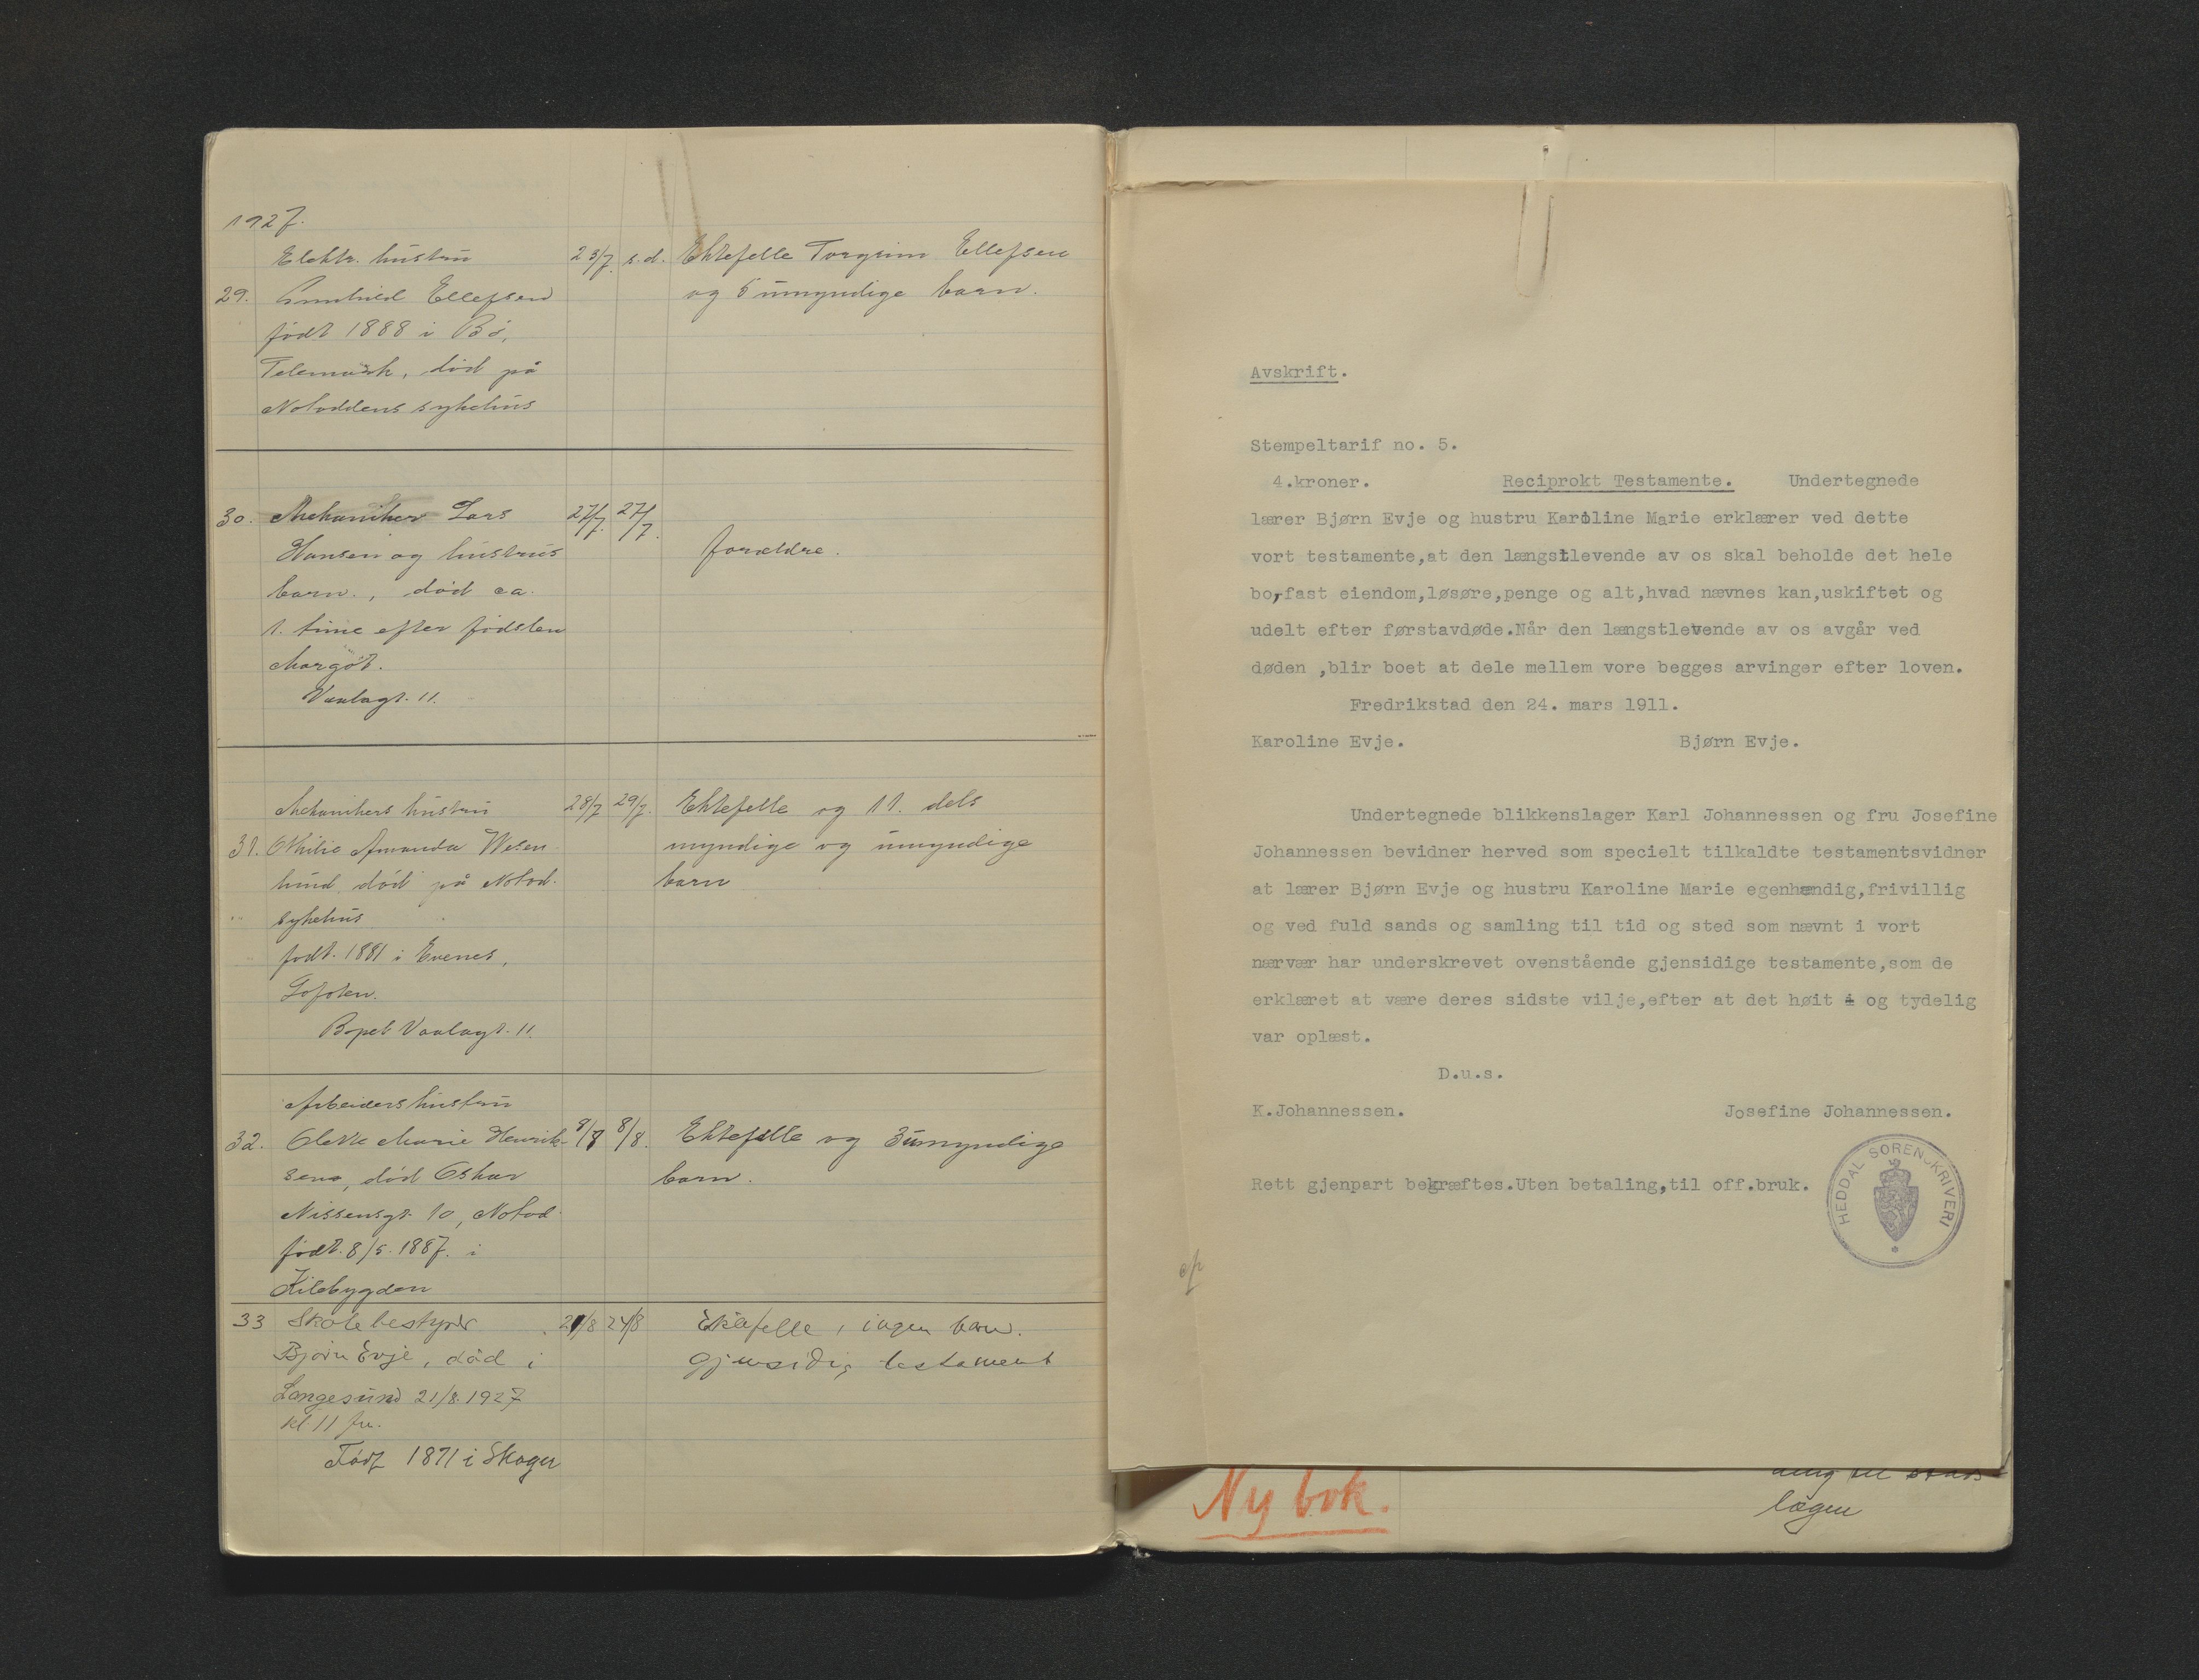 1927.
Elektr. hustru 23/7. s.d. Ektefelle Torgrim Ellefsen
29. Gunhild Ellefsen og 5 umyndige barn.
født 1888 i Bø,
Telemark, død på
Notoddens sykehus
30. Mekaniker Lars 27/7. 27/7.
Hansen og hustrus forældre.
barn., død ca.
1. time efter fødslen
Margot.
Vaalagt. 11.
Mekanikers hustru 28/7 29/7. Ektefelle og 11. dels
31. Othilie Amanda Wesen- myndige og umyndige
lund, død på Notod. barn
sykehus
født. 1881 i Evenes,
Lofoten.
Bopel Vaalagt. 11.
Arbeiders hustru
32. Olette Marie Henrik- 8/8 8/8. Ektefelle og 3 umyndige
sen, død Oskar barn.
Nissensgt. 10, Notod.
født. 8/5. 1887. i
Kilebygden
33 Skolebestyrer 21/8 24/8 Ektefelle, ingen barn.
Bjørn Evje, død i gjensidig testament
Langesund 21/8. 1927
kl 11 fm.
Født 1871 i Skoger
Avskrift.
Stempeltarif no. 5.
4.kroner. Reciprokt Testamente. Undertegnede
lærer Bjørn Evje og hustru Karoline Marie erklærer ved dette
vort testamente,at den længstlevende av os skal beholde det hele
bo,fast eiendom,løsøre,penge og alt,hvad nævnes kan,uskiftet og
udelt efter førstavdøde.Når den længstlevende av os avgår ved
døden ,blir boet at dele mellem vore begges arvinger efter loven.
Fredrikstad den 24. mars 1911.
Karoline Evje. Bjørn Evje.
Undertegnede blikkenslager Karl Johannessen og fru Josefine
Johannessen bevidner herved som specielt tilkaldte testamentsvidner
at lærer Bjørn Evje og hustru Karoline Marie egenhændig,frivillig
og ved fuld sands og samling til tid og sted som nævnt i vort
nærvær har underskrevet ovenstående gjensidige testamente,som de
erklæret at være deres sidste vilje,efter at det høit og tydelig
var oplæst.
D.u.s.
K.Johannessen. Josefine Johannessen.
Rett gjenpart bekræftes.Uten betaling,til off.bruk.
HEDDAL SORENSKRIVERI
Ny bok.
til
lægen